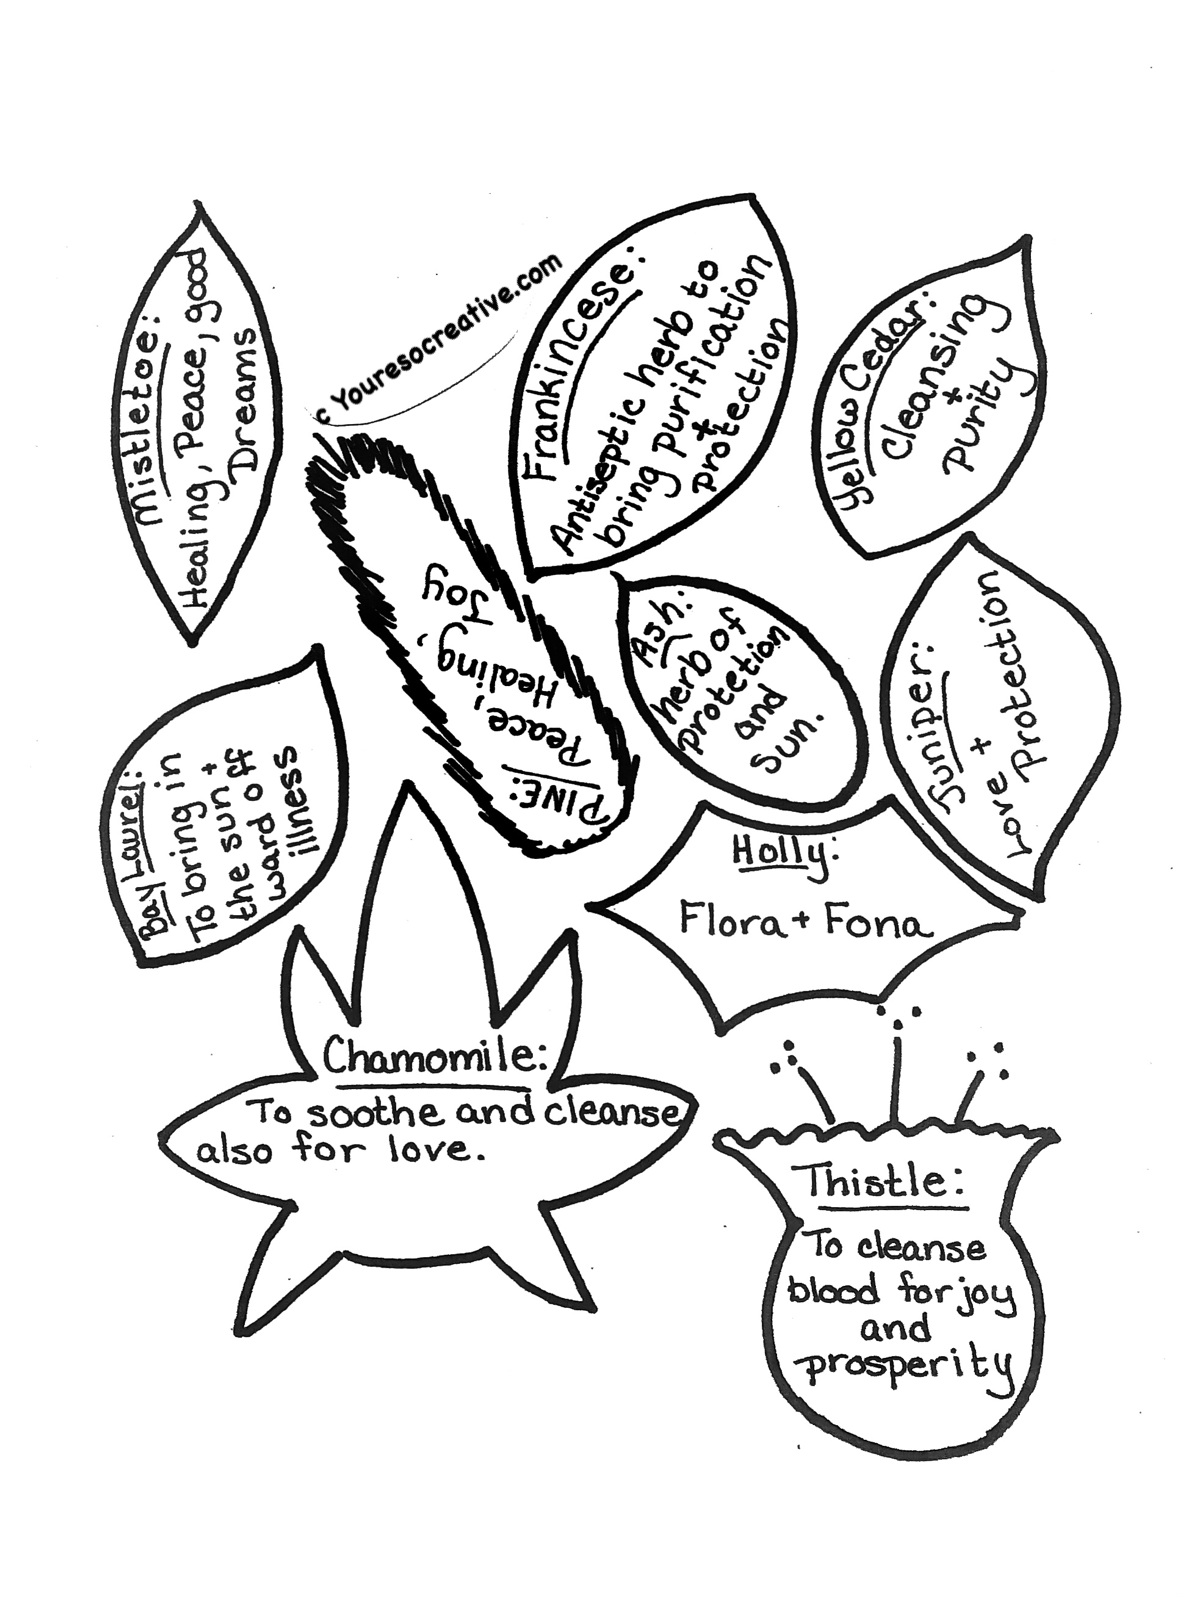 Mistletoe:
Healing, Peace, good
Dreams
c Youresocreative.com
Frankincese:
Antiseptic herb to
bring purification
+
protection
Yellow Cedar:
Cleansing
+
purity
PINE:
Peace,
Healing,
Joy
Ash:
herb of
protetion
and
sun.
Juniper:
Love +
Protection
Bay Laurel:
To bring in
the sun +
ward off
illness
Holly:
Flora + Fona
Chamomile:
To soothe and cleanse
also for love.
Thistle:
To cleanse
blood for joy
and
prosperity